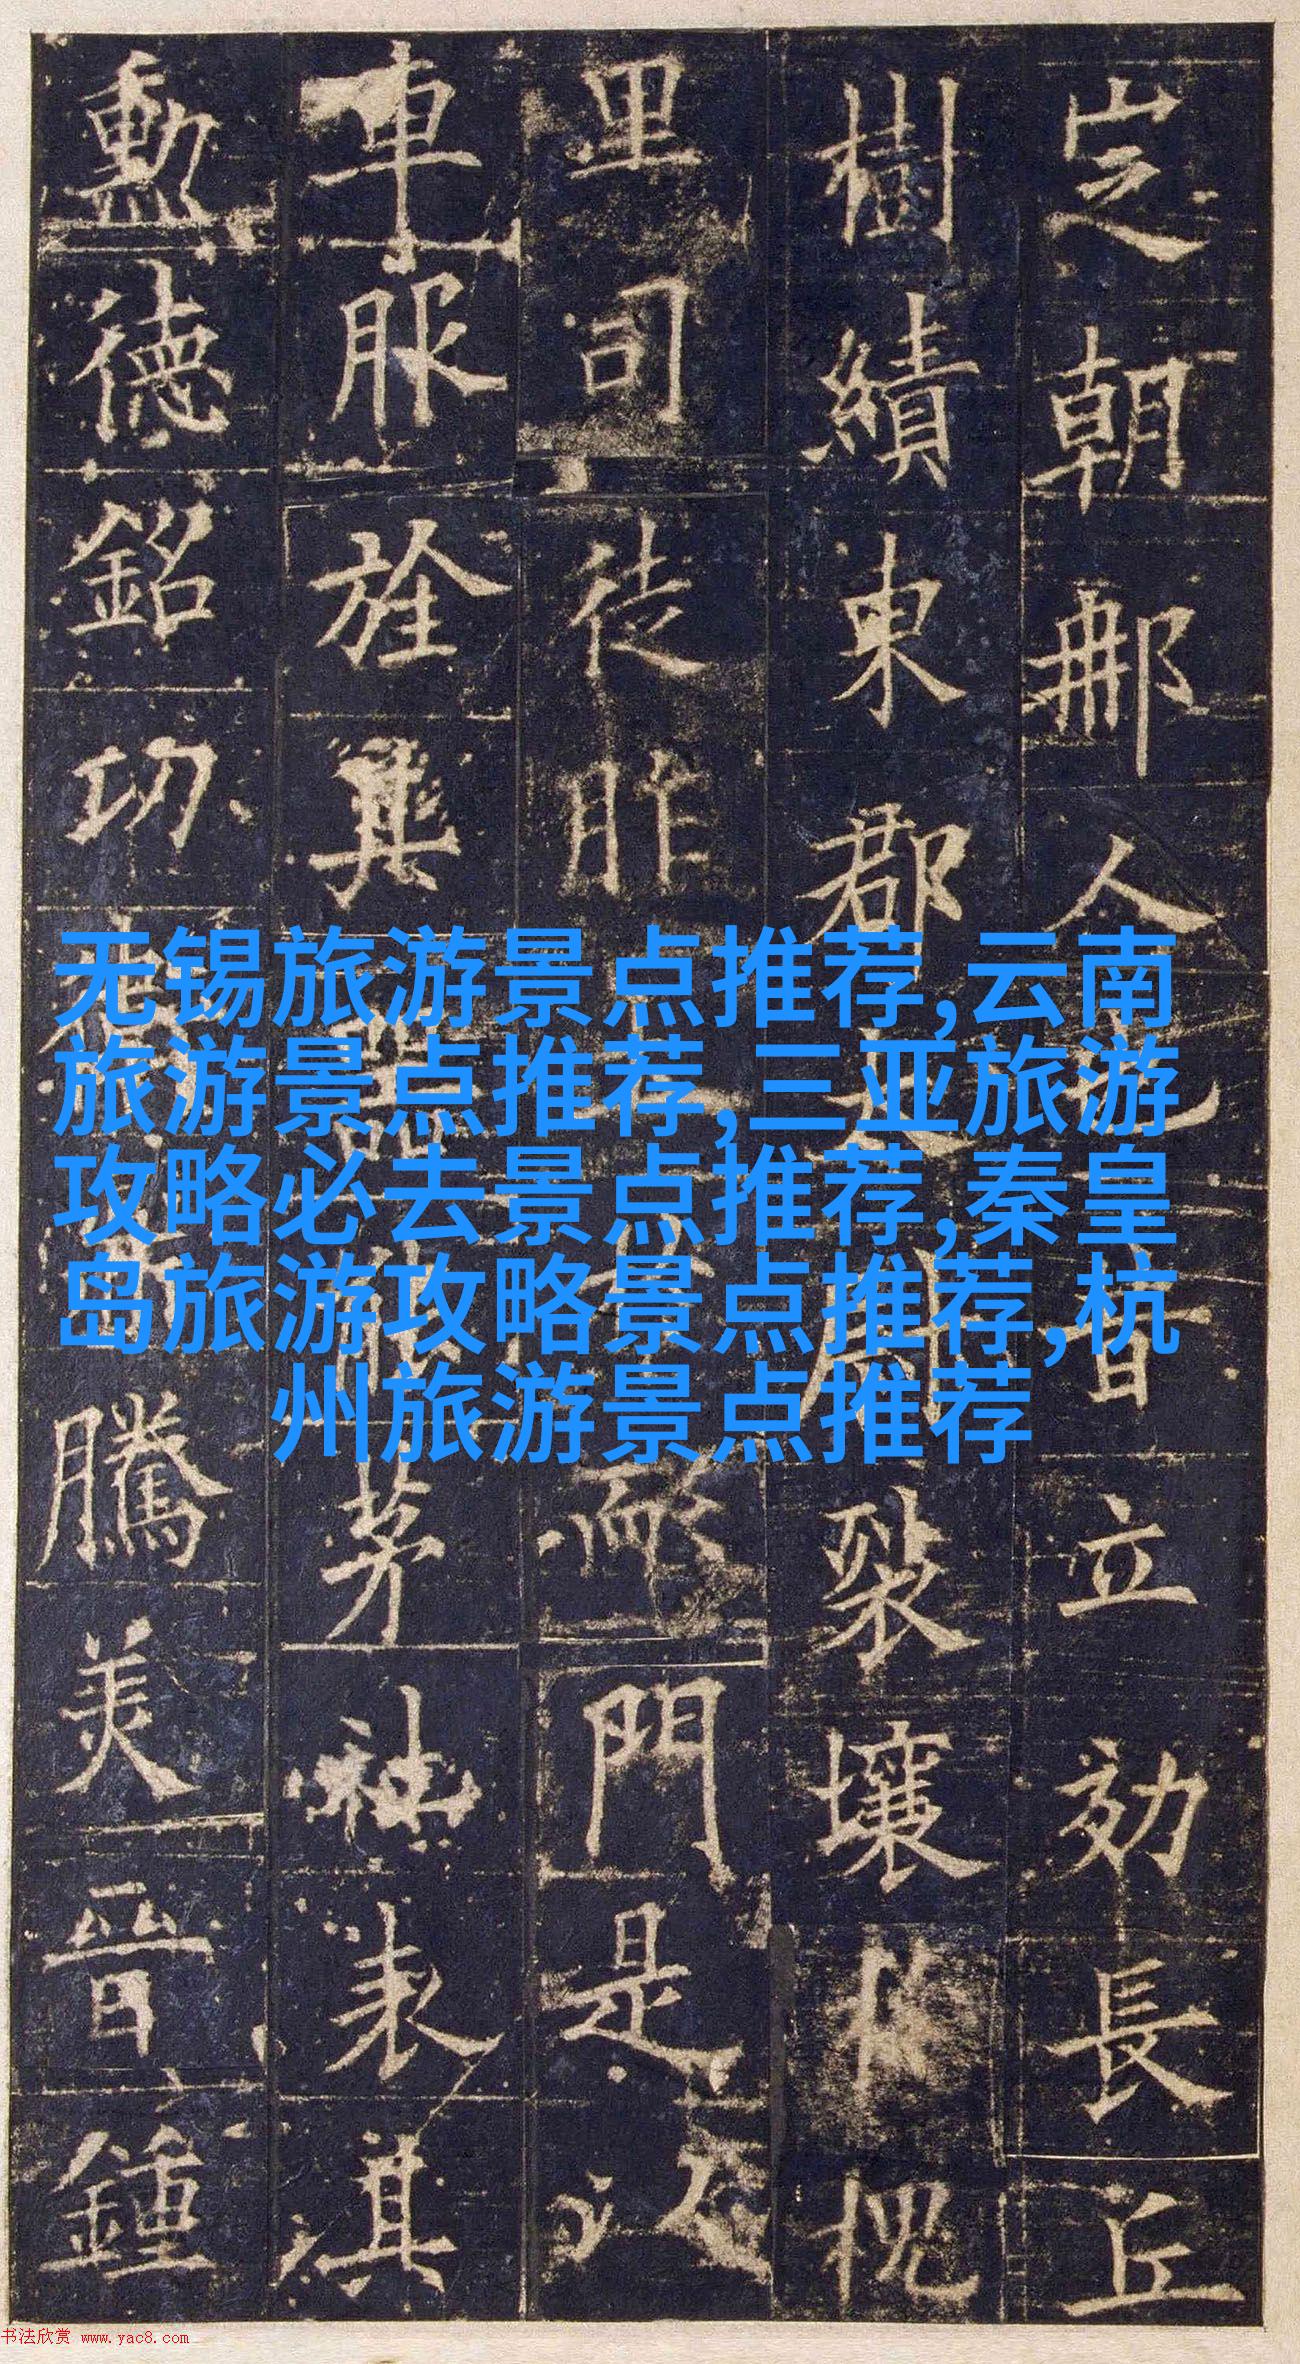 定朝那人也昔立効長丘
樹績東郡太尉裂壤於槐
里司徒胙土於耏門是以
車服旌其器能茅社表其
勳德銘功衛鼎騰美晉鍾
无锡旅游景点推荐,云南
旅游景点推荐,三亚旅游
攻略必去景点推荐,秦皇
岛旅游攻略景点推荐,杭
州旅游景点推荐
书法欣赏 www.yac8.com